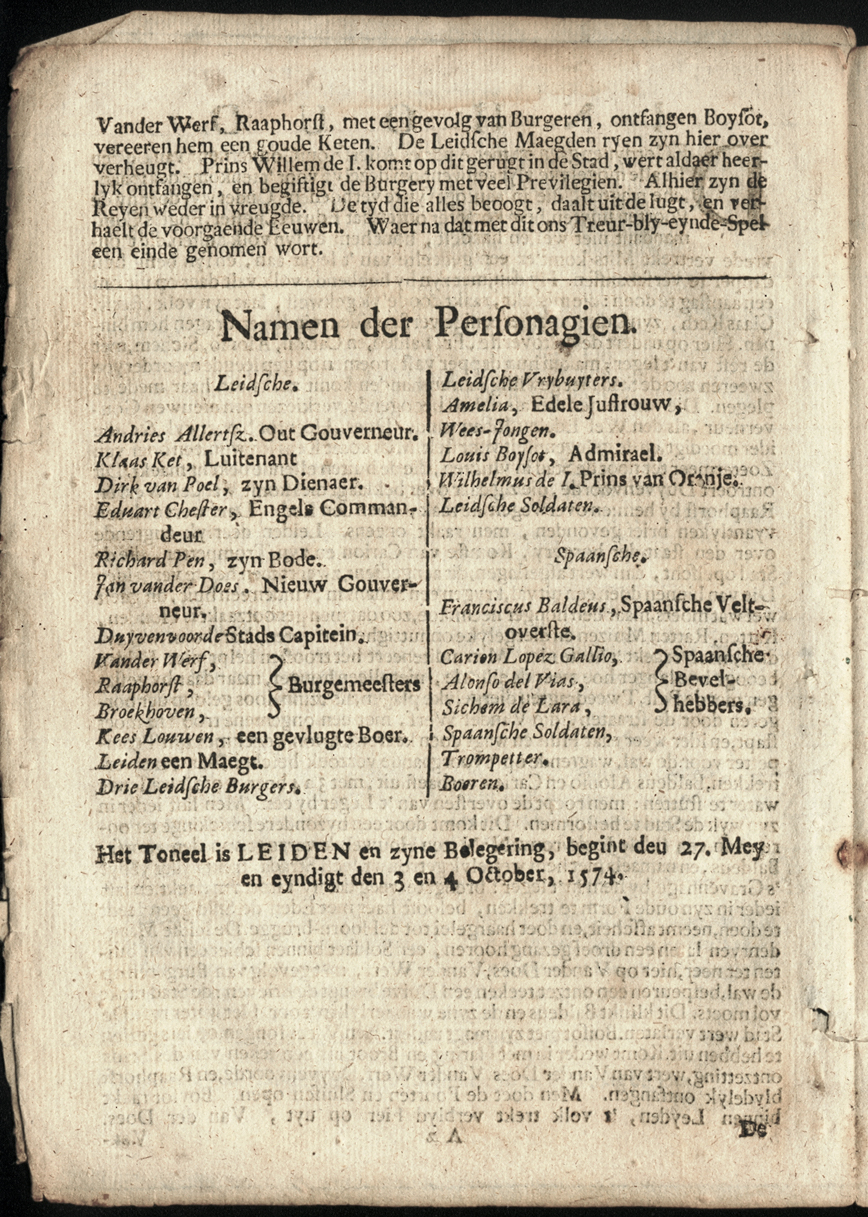 Vander Werf, Raaphorſt, met een gevolg van Burgeren, ontfangen Boyſot,
vereeren hem een goude Keten. De Leidſche Maegden ryen zyn hier over
verheugt. Prins Willem de I. komt op dit gerugt in de Stad, wert aldaer heer-
lyk ontfangen, en begiftigt de Burgery met veel Previlegien. Alhier zyn de
Reyen weder in vreugde. De tyd die alles beoogt, daalt uit de lugt, en ver-
haelt de voorgaende Eeuwen. Waer na dat met dit ons Treur-bly-eynde-Spel
een einde genomen wort.
Namen der Perſonagien.
Leidſche.
Andries Allertſz. Out Gouverneur.
Klaas Ket, Luitenant
Dirk van Poel, zyn Dienaer.
Eduart Cheſter, Engels Comman-
deur
Richard Pen, zyn Bode.
Jan vander Does. Nieuw Gouver-
neur.
Duyvenvoorde Stads Capitein.
Vander Werf,
Raaphorſt, Burgemeeſters
Broekhoven,
Kees Louwen, een gevlugte Boer.
Leiden een Maegt.
Drie Leidſche Burgers.
Leidſche Vrybuyters.
Amelia, Edele Juffrouw,
Wees-Jongen.
Louis Boyſot, Admirael.
Wilhelmus de I. Prins van Oranje.
Leidſche Soldaten.
Spaanſche.
Franciscus Baldeus, Spaanſche Velt-
overſte.
Carion Lopez Gallio, Spaanſche
Alonſo del Vias, Bevel-
Sichem de Lara, hebbers.
Spaanſche Soldaten,
Trompetter.
Boeren.
Het Toneel is LEIDEN en zyne Belegering, begint deu 27. Mey
en eyndigt den 3 en 4 October, 1574.
De